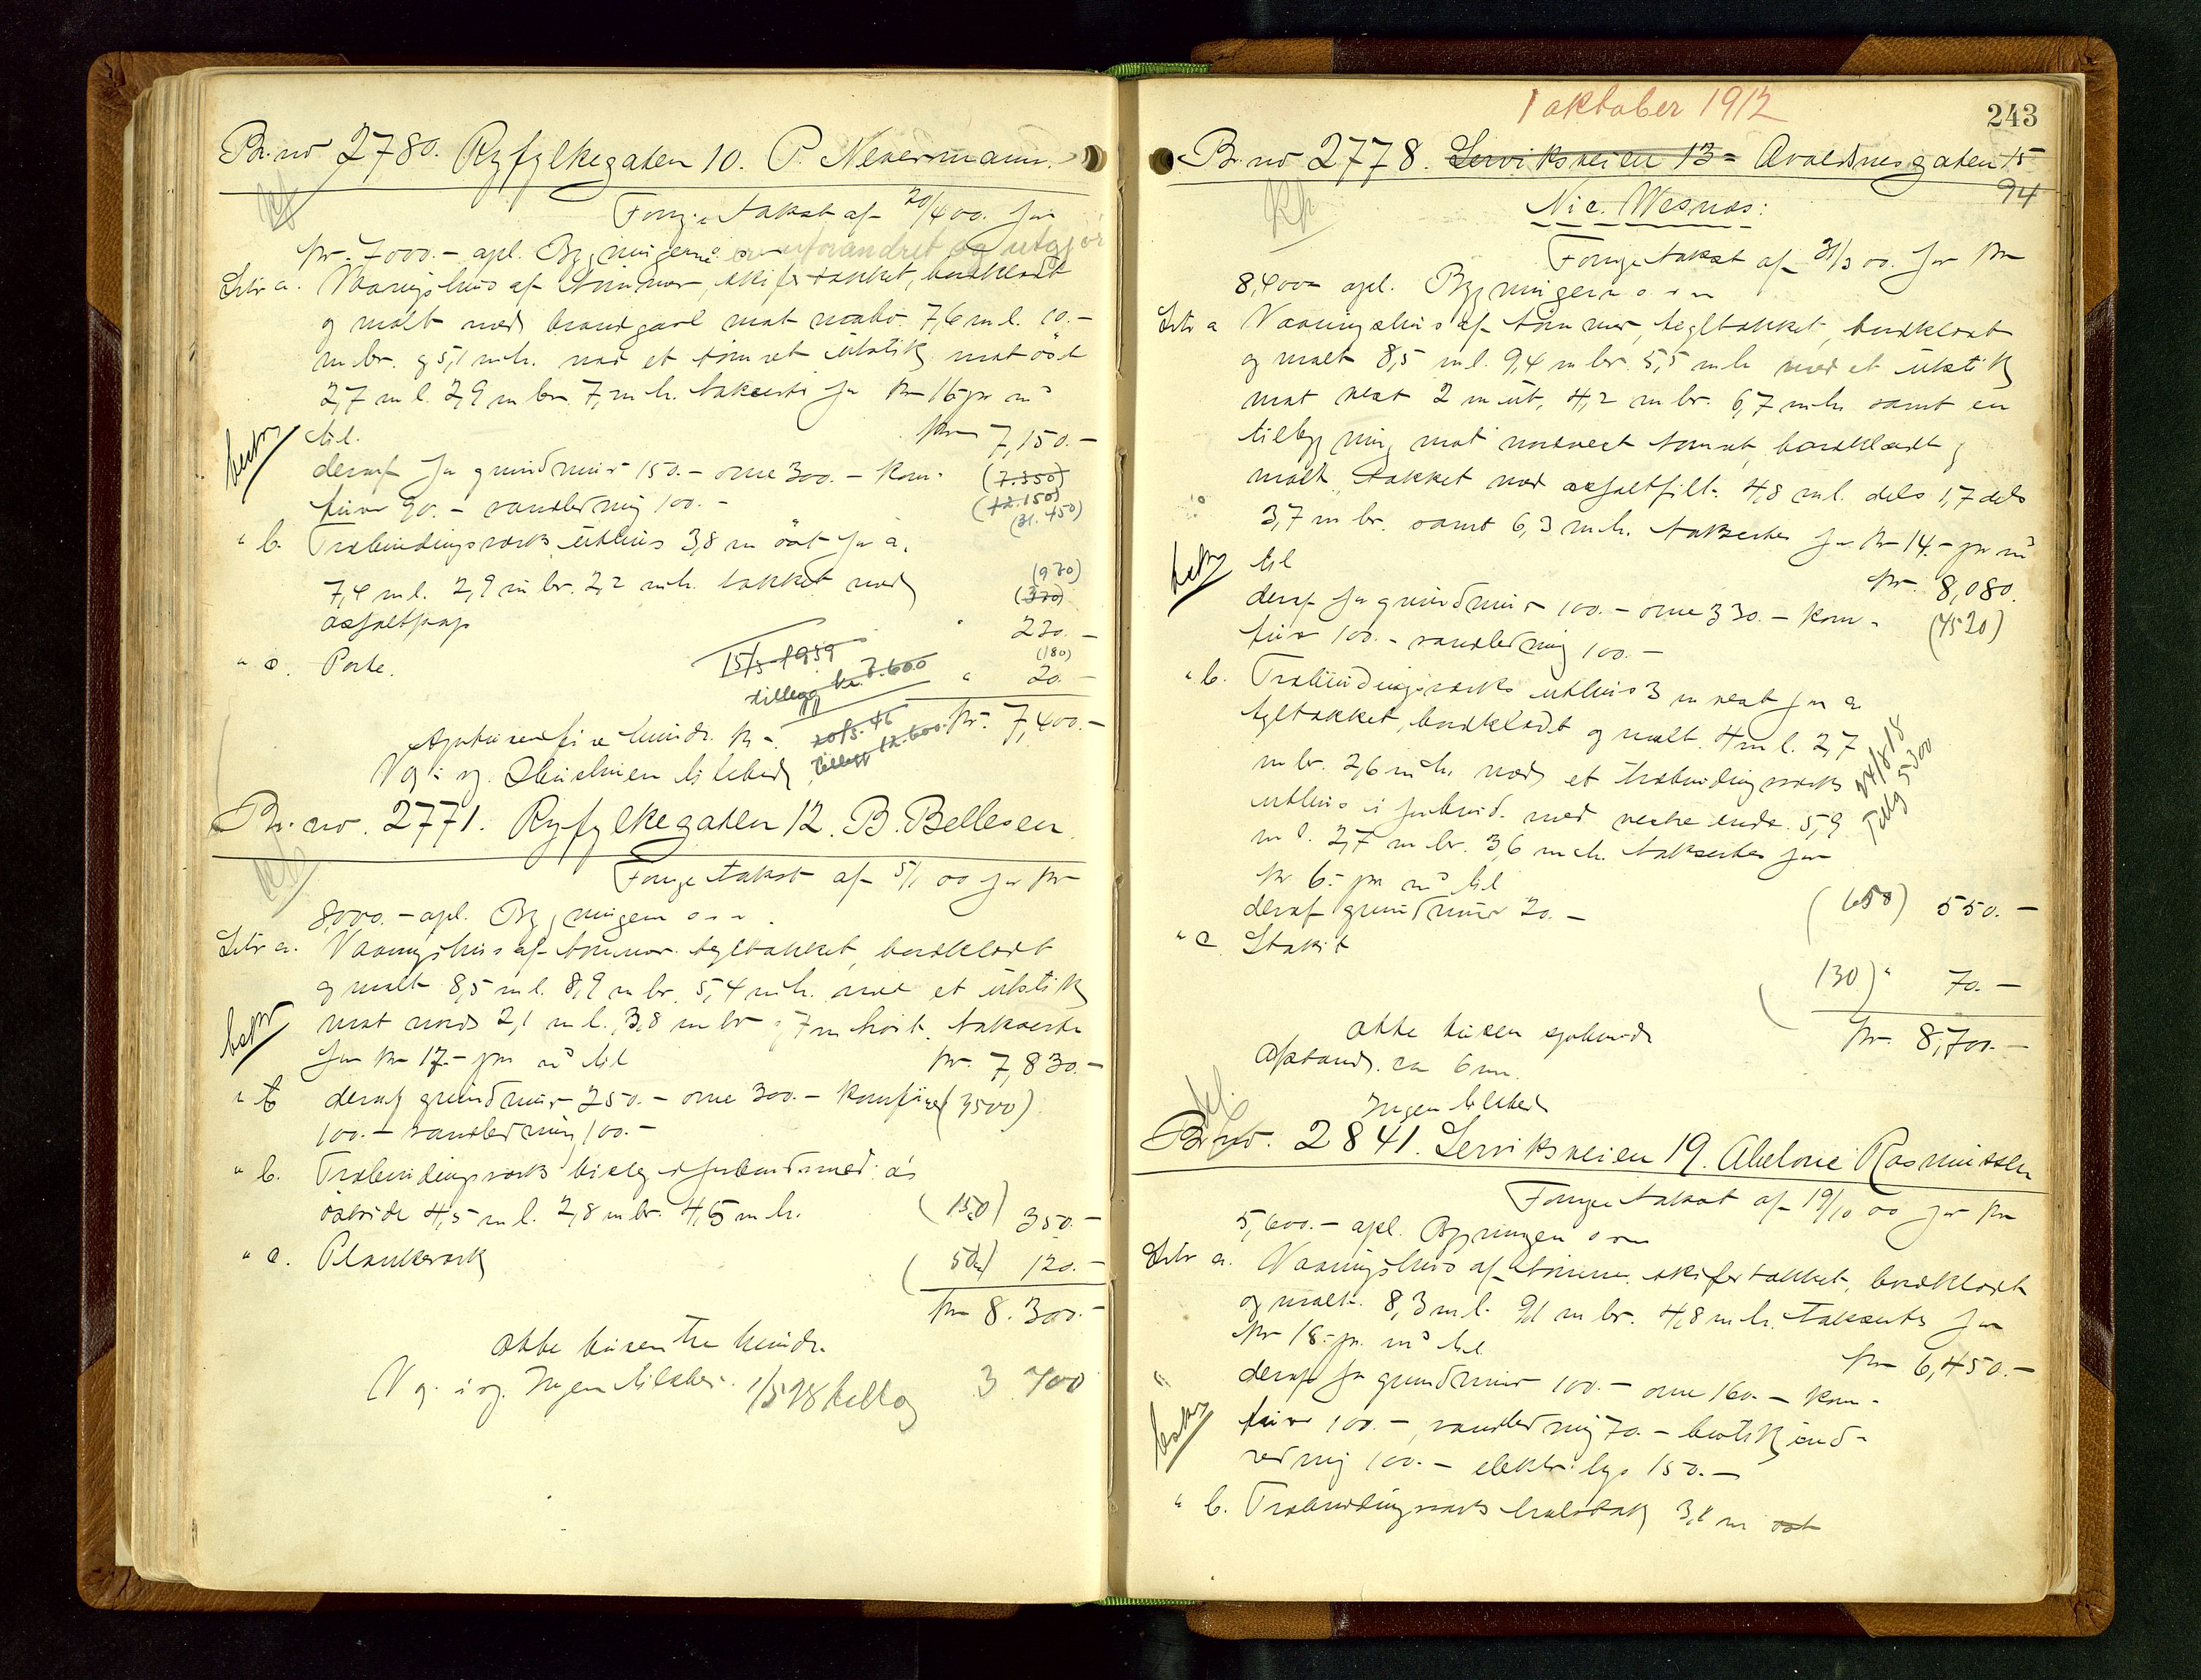 Br. no 2780. Ryfylkegaten 10. P. Nevermann.
Forrige takst af 20/4 00. for
kr. 7000.- opl. Bygningerne er uforandret og utgjør
Litr a. Vaaningshus af tømmer, skifertækket, bordklædt
og malt med brandgavl mot nabo. 7,6 m l. 10.-
m br. og 5,1 m h. med et tømret utstik mot øst
2,7 m l. 2,9 m br. 7, m h. takseres for kr 16 pr m³
til. kr 7,150.-
deraf for grundmur 150.- ovne 300.- kom- (7.350)
fur 90.- vandledning 100.- (12.150)
(31.450)
" b. Træbindingsværks uthus 3,8 m øst for a.
7,4 m l. 2,9 m br. 2,2 m h. tækket med (970)
asfaltpap (370)
" 220.-
" c. Porte. (180)
" 20.-
15/3 1939
tillegg kr. 7.600
kr. 7,400.-
20/3-46
tillegg 12.600.-
Syvtusenfirehundr. kr.
V g. i sg. Skursteinen tilsted
Br. no. 2771. Ryfylkegaten 12. B. Bellesen
Forrige takst af 5/1 00 for kr
8000.- opl. Bygningerne
Litr a. Vaaningshus af tømmer. tegltækket, bordklædt
og malt 8,5 m l. 8,9 m br. 5,4 m h. med et utstik
mot nord 2,1 m l. 3,8 m br og 7 m høit. takseres
for kr 17.- pr m³ til kr. 7,830.-
deraf grundmur 250.- ovne 300.- komfur (3500)
100.- vandledning 100.-
" b. Træbindingsværks i forbind. med a's
østside 4,5 m l. 2,8 m br. 4,5 m h. (150) 350.-
" c. Plankeværk (50) 120.-
kr 8.300.-
otte tusen tre hundr.
V g. i sg. Ingen tilsted. 1/5 18 tillæg 3 700
1 oktober 1912
243
Br. no 2778. Lerviksveien 13 = Avaldsnesgaten 15
94
Nic. Wesnæs:
Forrige takst af 31/3 00. for kr
8,400- opl. Bygningerne
Litr a Vaaningshus af tømmer, tegltækket, bordklædt
og malt 8,5 m l. 9,4 m br. 5,5 m h med et utstik
mot vest 2 m ut, 4,2 m br. 6,7 m h samt en
tilbygning mot nordvest tømret, bordklædt og
malt tækket med asfaltfilt. 4,8 m l. dels 1,7 dels
3,7 m br. samt 6,3 m h. takseres for kr 14.- pr m³
til kr. 8,080.
deraf for grundmur 100.- ovne 330.- kom- (4520)
fur 100.- vandledning 100.-
" b. Træbindingsværks uthus 3 m vest for a
tegltækket, bordklædt og malt. 4 m l. 2,7
m br. 2,6 m h. med et træbindingsværks
uthus i forbind. med vestre ende. 5,9
m l. 2,7 m br. 3,6 m h. takseres for
24/8 18
Tillg 5300
kr 6.- pr m³ til
deraf grundmur 20.- (650) 550.-
" c Stakit
(130) " 70.-
kr. 8,700.-
otte tusen syvhundr
Afstand. ca 6 m.
Ingen tilsted
Br. no. 2841. Lerviksveien 19. Abelone Rasmussen
Forrige takst af 19/10 00 for kr
5,600.- opl. Bygningen
Litr a. Vaaningshus af tømmer. skifertækket, bordklædt
og malt. 8,3 m l. 9,1 m br. 4,8 m h. takseres for
kr 18.- pr. m³ til kr 6,450.-
deraf for grundmur 100.- ovne 160.- kom-
fur 100.-, vandledning 70.- butikind-
redning 100.- elektr. lys 150.-
" b. Træbindingsværks halvtak 3,8 m øst